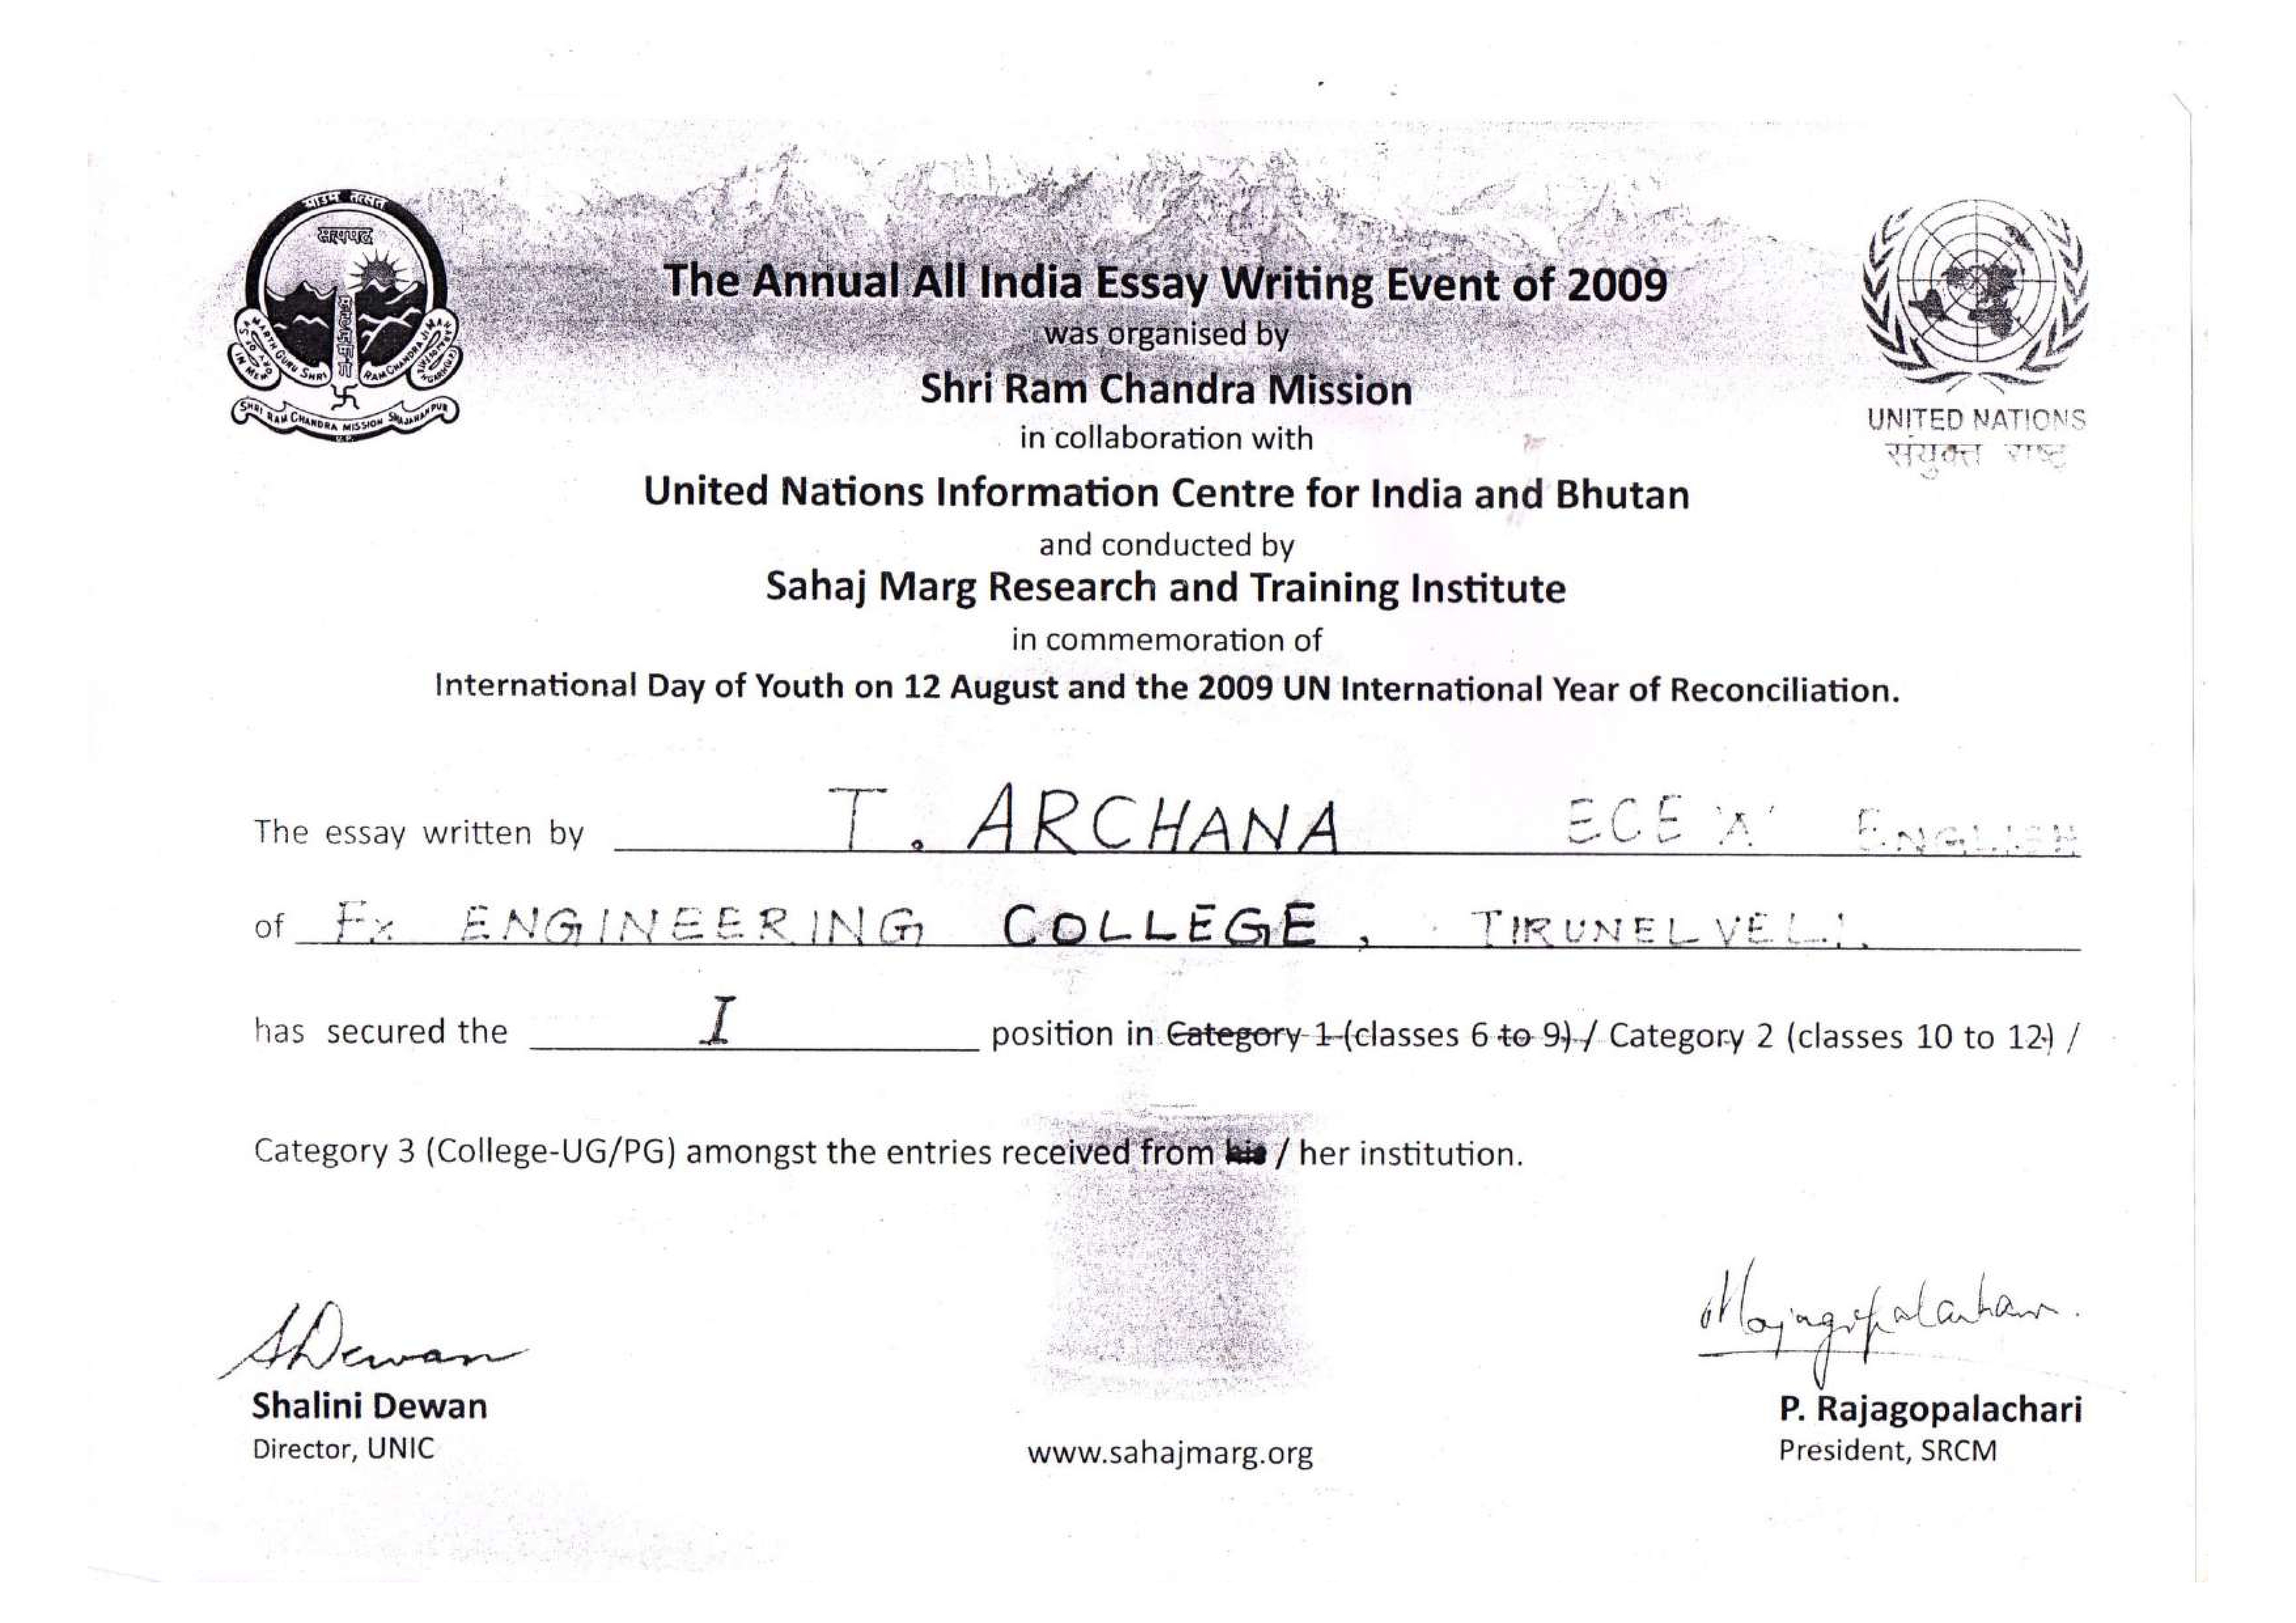 याउम तत्सत
सत्यपद
सहजमार्ग
SAMARTH GURU SHRI RAM CHANDRA JI MAHARAJ
SHRI RAM CHANDRA MISSION SHAJAHANPUR
U.P.
UNITED NATIONS
संयुक्त राष्ट्र
The Annual All India Essay Writing Event of 2009
was organised by
Shri Ram Chandra Mission
in collaboration with
United Nations Information Centre for India and Bhutan
and conducted by
Sahaj Marg Research and Training Institute
in commemoration of
International Day of Youth on 12 August and the 2009 UN International Year of Reconciliation.
The essay written by T. ARCHANA ECE 'A' ENGLISH
of Fx ENGINEERING COLLEGE, TIRUNELVELI.
has secured the I position in Category 1 (classes 6 to 9) / Category 2 (classes 10 to 12) /
Category 3 (College-UG/PG) amongst the entries received from his / her institution.
SDewan
Shalini Dewan
Director, UNIC
www.sahajmarg.org
P. Rajagopalachari
President, SRCM